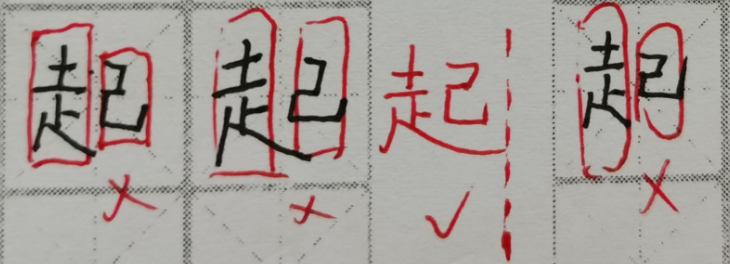 起 起 起 起